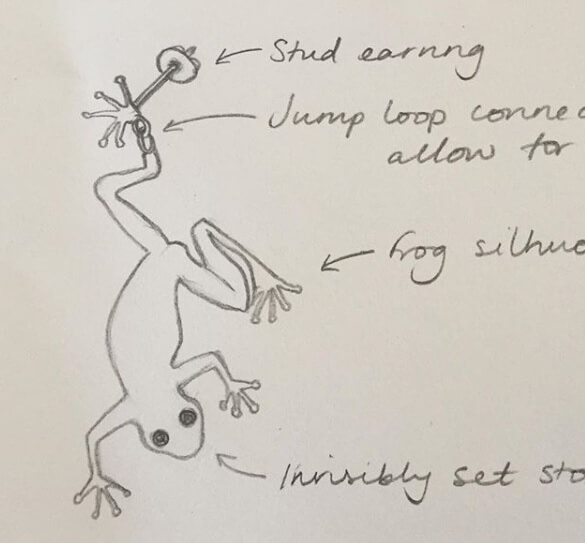 Stud earring
Jump loop connec
allow for
frog silhue
Invisibly set sto